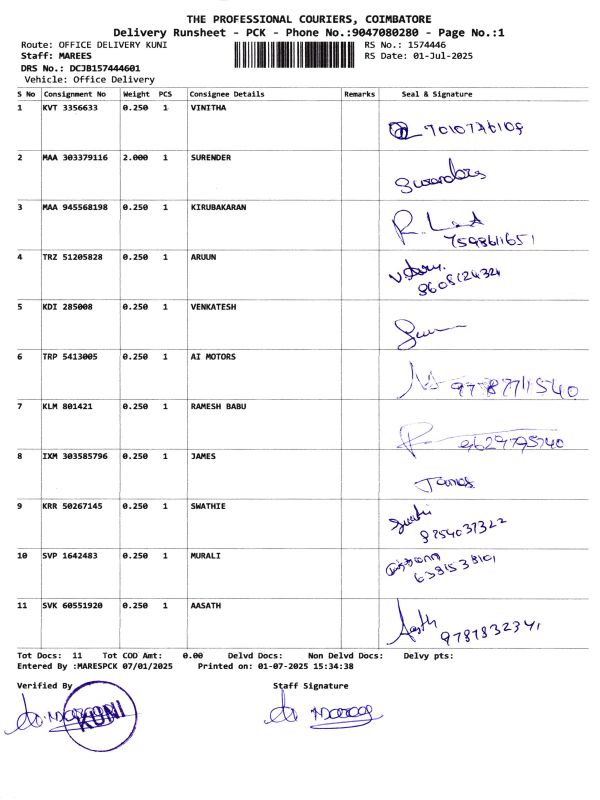 THE PROFESSIONAL COURIERS, COIMBATORE
Delivery Runsheet - PCK - Phone No.:9047080280 - Page No.:1
Route: OFFICE DELIVERY KUNI RS No.: 1574446
Staff: MAREES RS Date: 01-Jul-2025
DRS No.: DCJB157444601
Vehicle: Office Delivery
S No Consignment No Weight PCS Consignee Details Remarks Seal & Signature
1 KVT 3356633 0.250 1 VINITHA
2 MAA 303379116 2.000 1 SURENDER
3 MAA 945568198 0.250 1 KIRUBAKARAN
7598611651
4 TRZ 51205828 0.250 1 ARUUN
8608124324
5 KDI 285008 0.250 1 VENKATESH
6 TRP 5413005 0.250 1 AI MOTORS
9787711540
7 KLM 801421 0.250 1 RAMESH BABU
9629795740
8 IXM 303585796 0.250 1 JAMES
James
9 KRR 50267145 0.250 1 SWATHIE
Swathi
9754037322
10 SVP 1642483 0.250 1 MURALI
11 SVK 60551920 0.250 1 AASATH
Aasath
9787832341
Tot Docs: 11 Tot COD Amt: 0.00 Delvd Docs: Non Delvd Docs: Delvy pts:
Entered By :MARESPCK 07/01/2025 Printed on: 01-07-2025 15:34:38
Verified By Staff Signature
KUNI